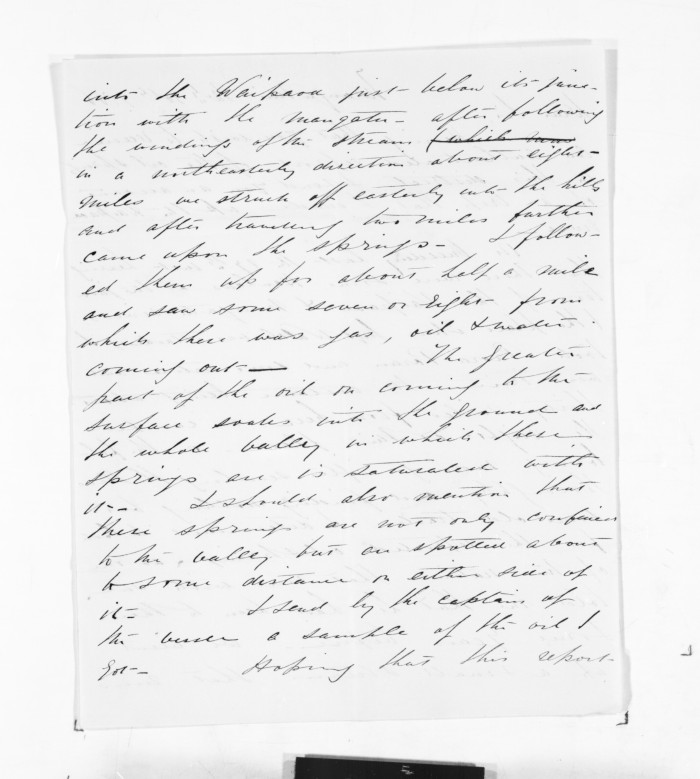 into the Waipaoa just below its junc-
tion with the mangatu - after following
the windings of the stream (which runs
in a northeasterly direction about eight
miles we struck off easterly into the hills
and after traveling two miles further
came upon the springs - I follow-
ed them up for about half a mile
and saw some seven or eight from
which there was gas, oil & water
coming out - The greater
part of the oil on coming to the
surface soaks into the ground and
the whole valley in which these
springs are is saturated with
it - I should also mention that
these springs are not only confined
to the valley but are spotted about
to some distance on either side of
it - I send by the captain of
the vessel a sample of the oil I
got - Hoping that this report